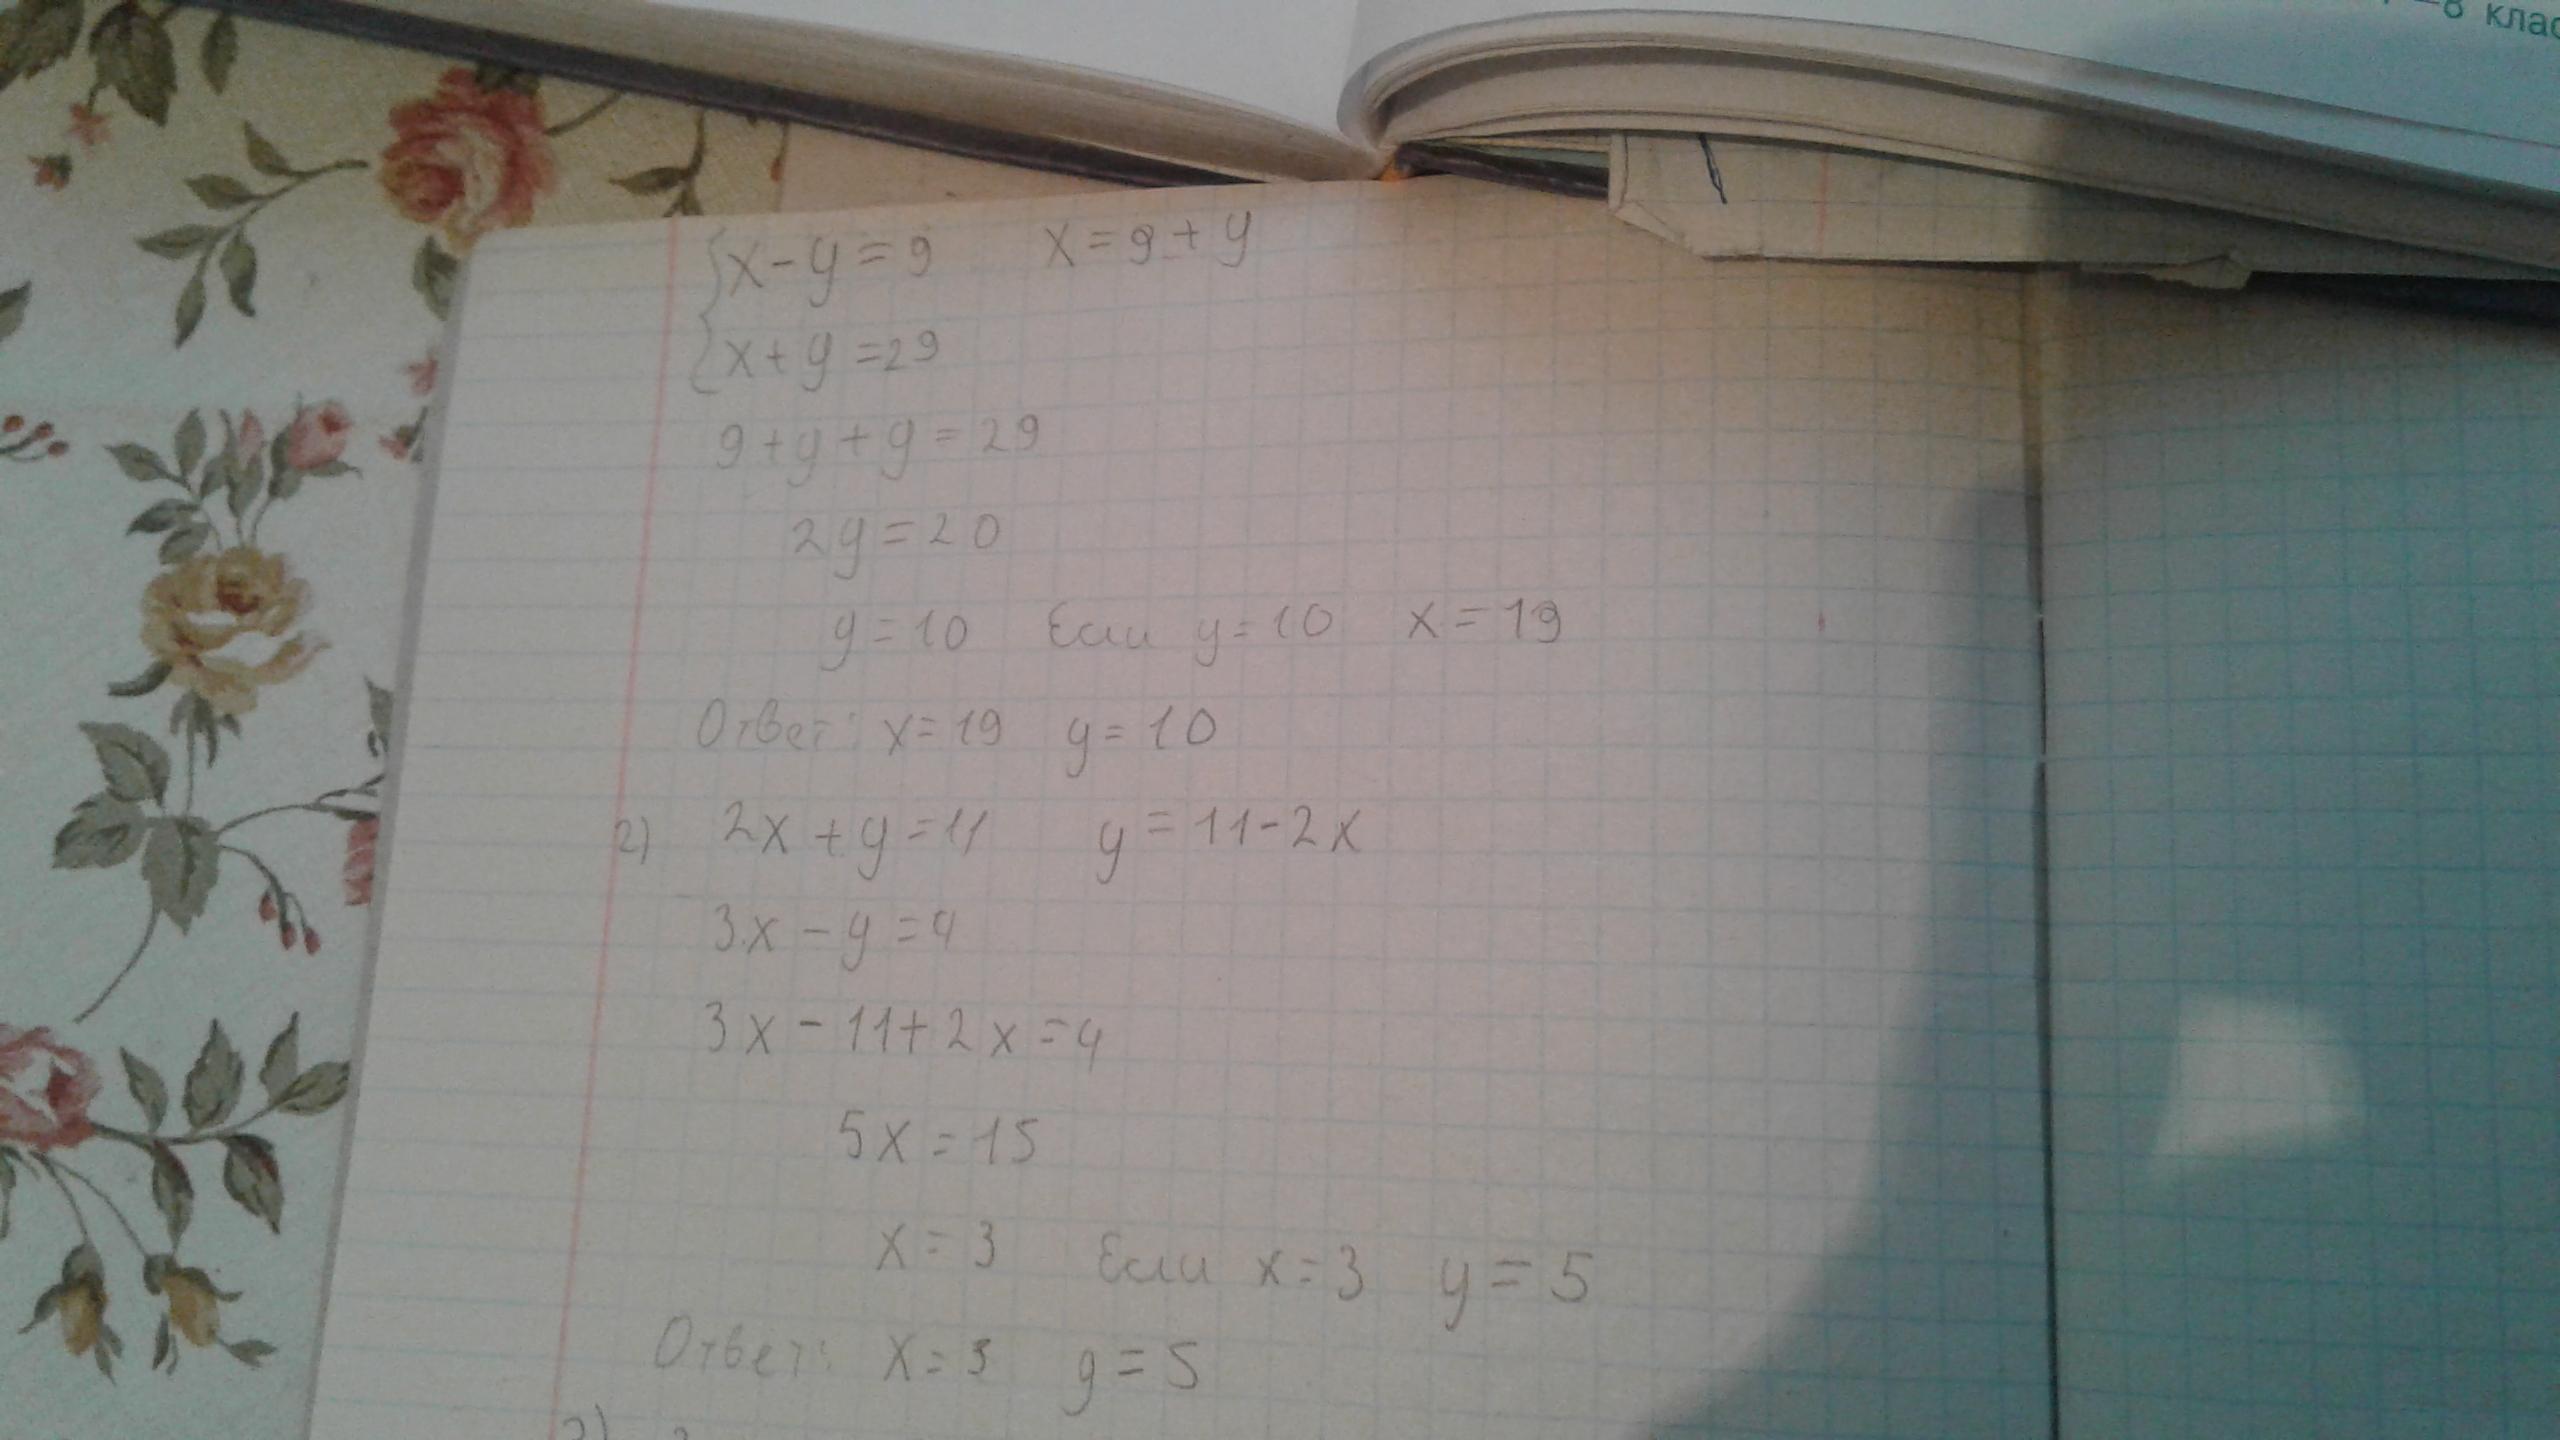 –8 клас
{x-y=9 x=9+y
{x+y=29
9+y+y=29
2y=20
y=10 Если y=10 x=19
Ответ: x=19 y=10
2) 2x+y=11 y=11-2x
3x-y=4
3x-11+2x=4
5x=15
x=3 Если x=3 y=5
Ответ: x=3 y=5